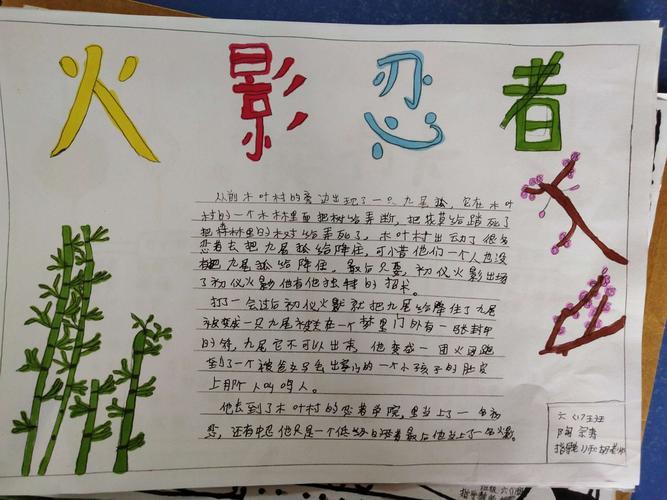 火影忍者
从前木叶村的旁边出现了一只九尾狐，它在木叶
村的一个木林里面把树给弄断，把花草给踏死了
把得林里的树给弄死了，木叶村出动了很多
忍者去把九尾狐给降住，可惜他们一个人也没
把九尾狐给降住，最后只要初仪火影出场
了初仪火影他有他独特的招术。
打了一会过后初仪火影就把九尾给降住了九尾
被变成一只九尾被关在一个梦里门外有一张封印
的符，九尾它不可以出来，他变成一团火逃跑
到了一个被爸爸的一个小孩子的肚皮
上那个人叫鸣人。
他去到了木叶村的忍者学院，里当上了一名初
忍，还有中忍他只是一个低级的忍者最后他当上了一名火影
六(1)班
陶
指导